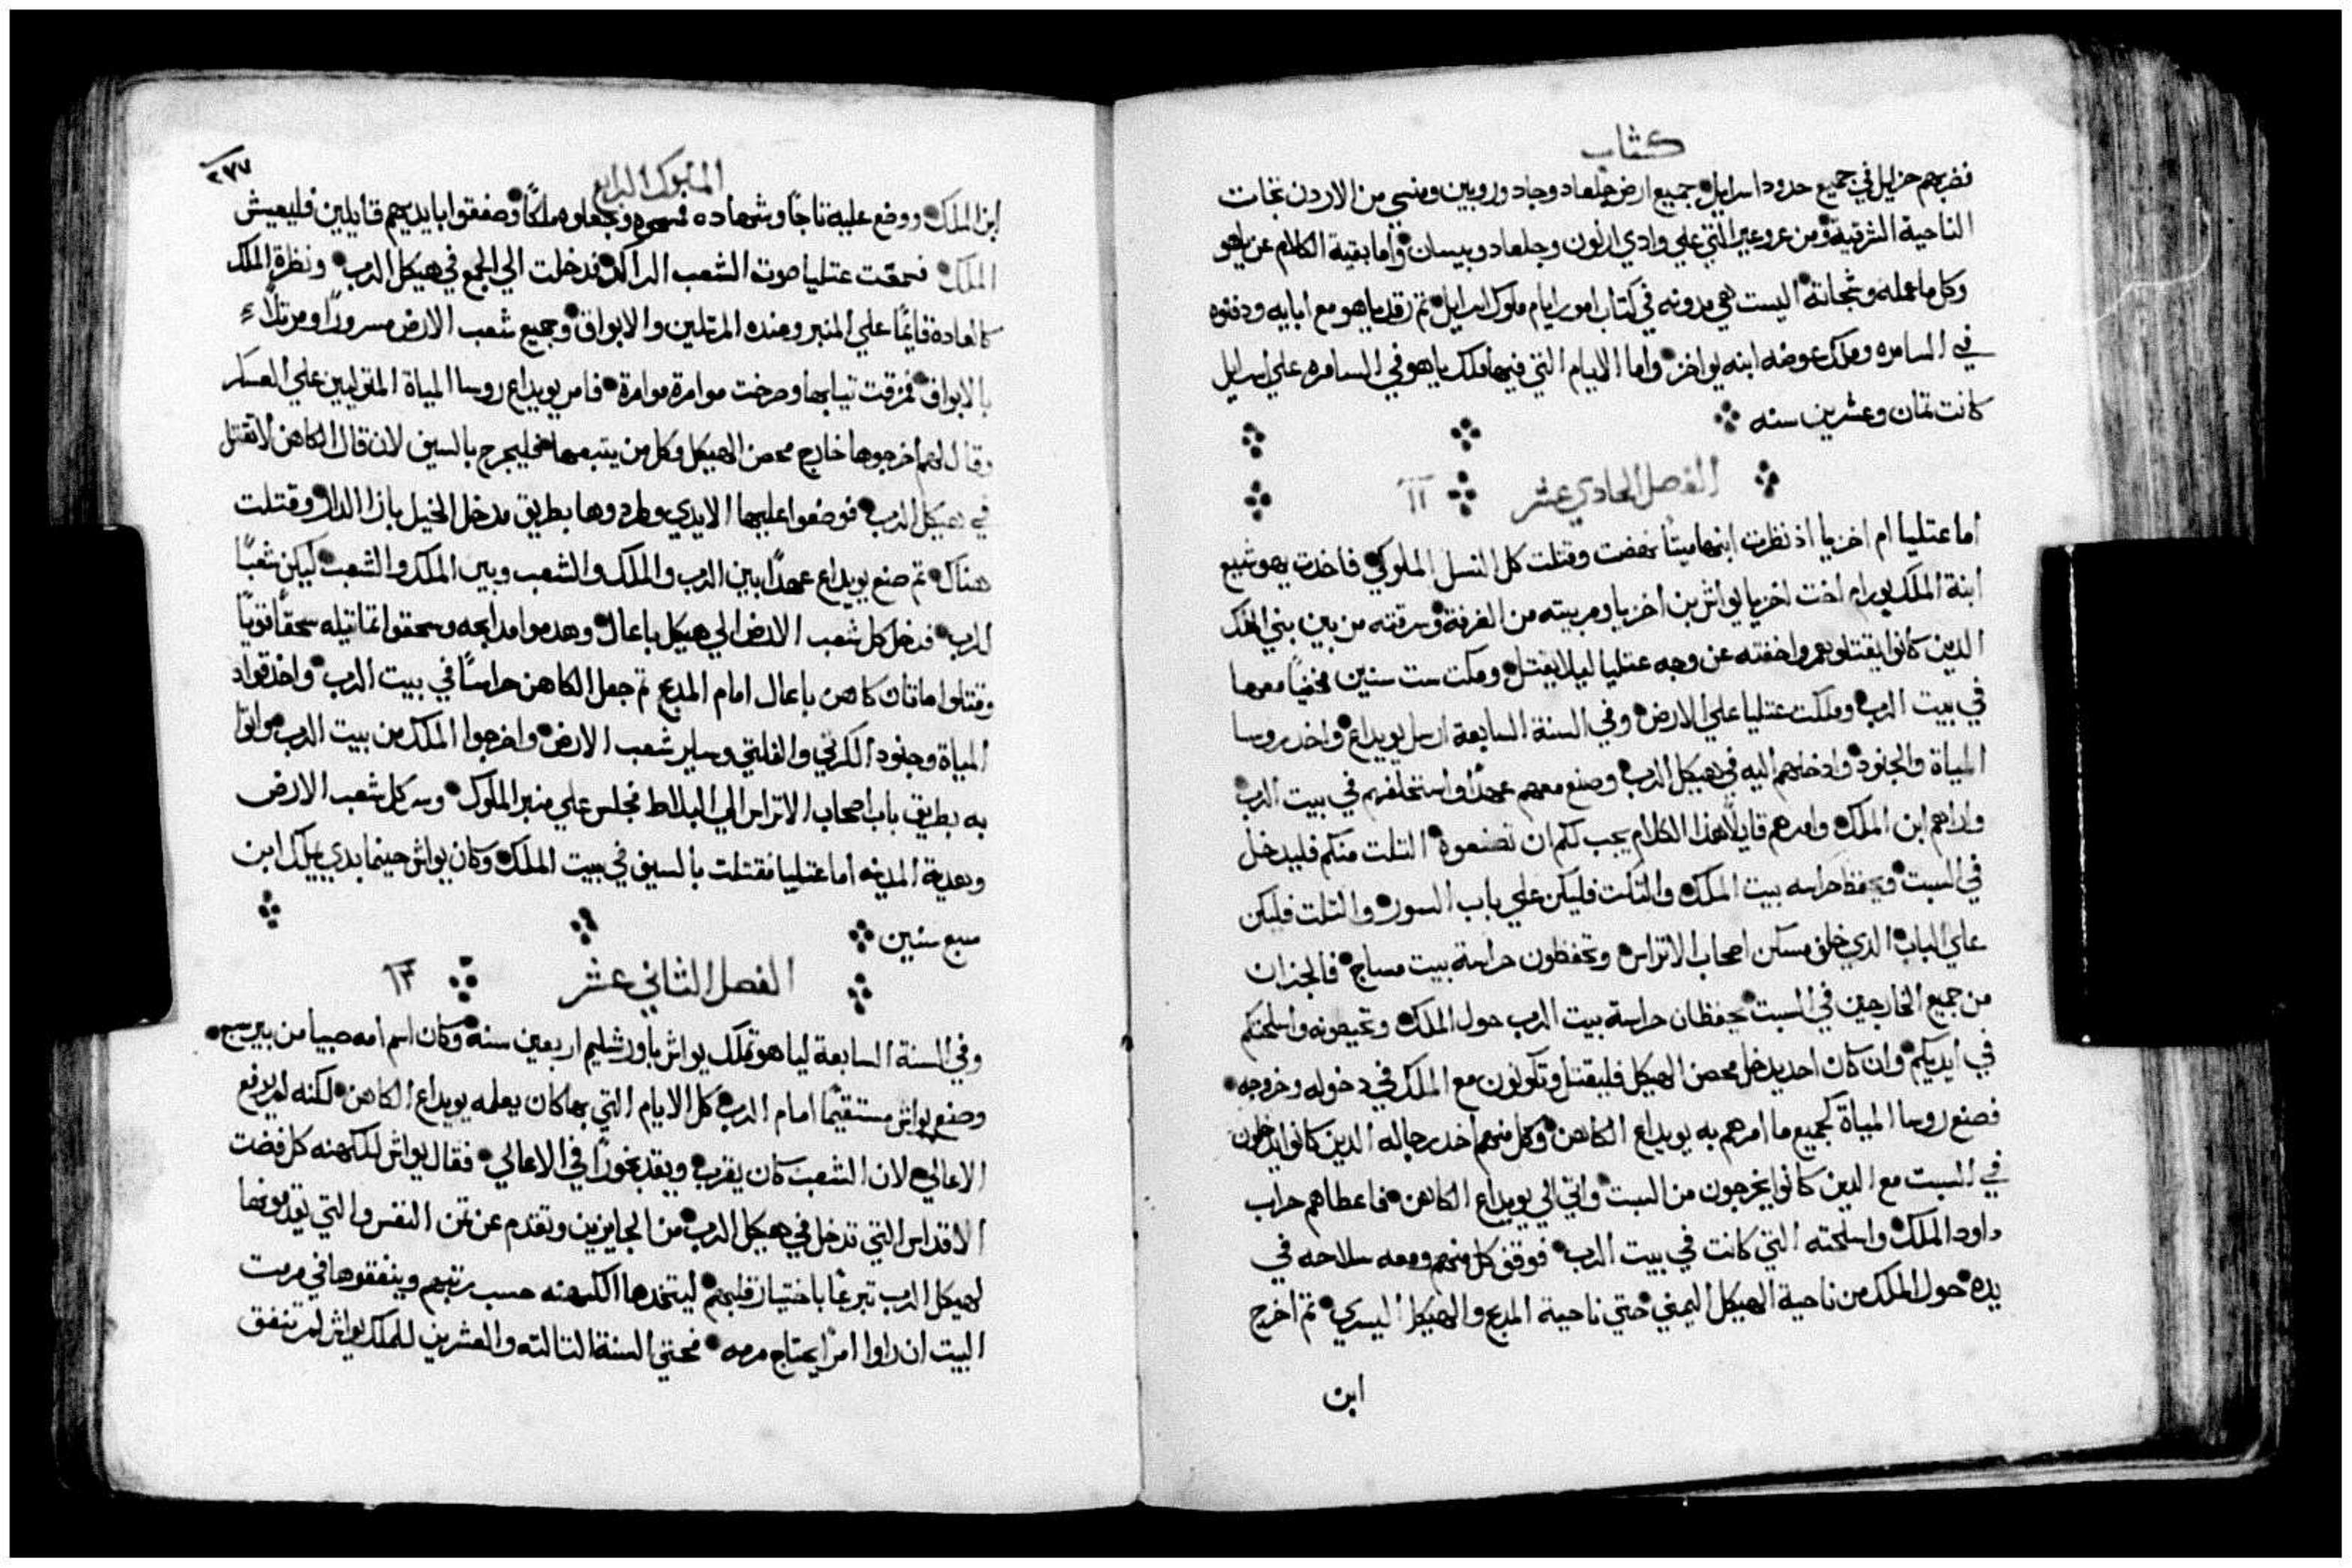 كتاب
فضربهم حزايل في جميع حدود اسرايل جميع ارض جلعاد وجاد وروبين ومنسي من الاردن تجات
الناحية الشرقية ومن عروعير التي علي وادي ارنون وجلعاد وبيسان واما بقية الكلام عن ياهو
وكل ما عمله وشجاعته اليست هي مدونه في كتاب امور ايام ملوك اسرايل تم رقد ياهو مع ابايه ودفنوه
في السامره وملك عوضه ابنه يواخز واما الايام التي فيها ملك ياهو في السامره علي اسرايل
كانت تمان وعشرين سنه
الفصل الحادي عشر ١١
اما عتليا ام اخزيا اذ نظرت ابنها ميتا نهضت وقتلت كل النسل الملوكي فاخدت يهوشبع
ابنة الملك يورام اخت اخزيا يواش بن اخزيا ومربيته من الغرفة وسرقته من بين بني الملك
الدين كانوا يقتلونهم واخفته عن وجه عتليا ليلا يقتل ومكت ست سنين مخفيا معها
في بيت الرب وملكت عتليا علي الارض وفي السنة السابعة ارسل يويداع واخد روسا
المياة والجنود وادخلهم اليه في هيكل الرب وصنع معهم عهدا واستحلفهم في بيت الرب
واراهم ابن الملك وامرهم قايلا هذا الكلام يجب لكم ان تصنعوه التلت منكم فليدخل
في السبت ويحفظ حراسه بيت الملك والتلت فليكن علي باب السور والتلت فليكن
علي الباب الدي خلف مسكن اصحاب الاتراس وتحفظون حراسة بيت مساج فالجزان
من جميع الخارجين في السبت يحفظان حراسة بيت الرب حول الملك وتحيطونه واسلحتكم
في ايديكم وان كان احد يدخل محصن الهيكل فليقتل وتكونون مع الملك في دخوله وخروجه
فصنع روسا المياة كجميع ما امرهم به يويداع الكاهن وكل منهم اخد رجاله الدين كانوا يدخلون
في السبت مع الدين كانوا يخرجون من السبت واتي الي يويداع الكاهن فاعطاهم حراب
داود الملك واسلحته التي كانت في بيت الرب فوقف كل منهم ومعه سلاحه في
يده حول الملك من ناحية الهيكل اليمني حتي ناحية المدبح والهيكل اليسري تم اخرج
ابن
الملوك الرابع
٢٧٧
ابن الملك ووضع عليه تاجا وشهاده فمسحوه وجعلوه ملكا وصفقوا بايديهم قايلين فليعيش
الملك فسمعت عتليا صوت الشعب الراكد فدخلت الي الجمع في هيكل الرب ونظرة الملك
كالعادة قايما علي المنبر وعنده المرتلين والابواق وجميع شعب الارض مسرورا ومرتلا
بالابواق فمزقت تيابها وصرخت موامرة موامرة فامر يويداع روسا المياة المتوليين علي العسكر
وقال لهم اخرجوها خارج محصن الهيكل وكل من يتبعها فليجرح بالسيف لان قال الكاهن لا تقتل
في هيكل الرب فوضعوا عليها الايدي وطردوها بطريق مدخل الخيل بازا الدار وقتلت
هناك تم صنع يويداع عهدا بين الرب والملك والشعب وبين الملك والشعب ليكن شعبا
للرب فدخل كل شعب الارض الي هيكل باعال وهدموا مدابحه وسحقوا تماتيله سحقا قويا
وقتلوا ماتان كاهن باعال امام المدبح تم جعل الكاهن حراسا في بيت الرب واخد قواد
المياة وجنود الكرتي والفلتي وساير شعب الارض واخرجوا الملك من بيت الرب مواتوا
به بطريق باب اصحاب الاتراس الي البلاط فجلس علي منبر الملوك وسر كل شعب الارض
وهدية المدينه اما عتليا فقتلت بالسيف في بيت الملك وكان يواش حينما بدي يملك ابن
سبع سنين
الفصل الثاني عشر ١٢
وفي السنة السابعة لياهو تملك يواش باورشليم اربعين سنة وكان اسم امه صبيا من بيرسبع
وصنع يواش مستقيما امام الرب كل الايام التي بها كان يعلمه يويداع الكاهن لكنه لم يرفع
الاعالي لان الشعب كان يقرب ويقد بخورا في الاعالي فقال يواش للكهنه كل فضت
الاقداس التي تدخل في هيكل الرب من الجايزين وتقدم عن تمن النفس والتي يقدمونها
لهيكل الرب تبرعا باختيار قلبهم ليتخدها الكهنه حسب رتبهم وينفقوها في مرمت
البيت ان راوا امرا يحتاج مرمه فحتي السنة التالته والعشرين للملك يواش لم تنفق